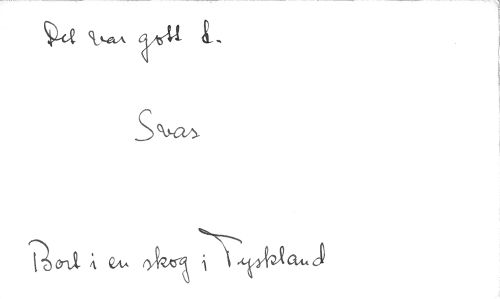 Det var gott d.
Svar
Bort i en skog i Tyskland